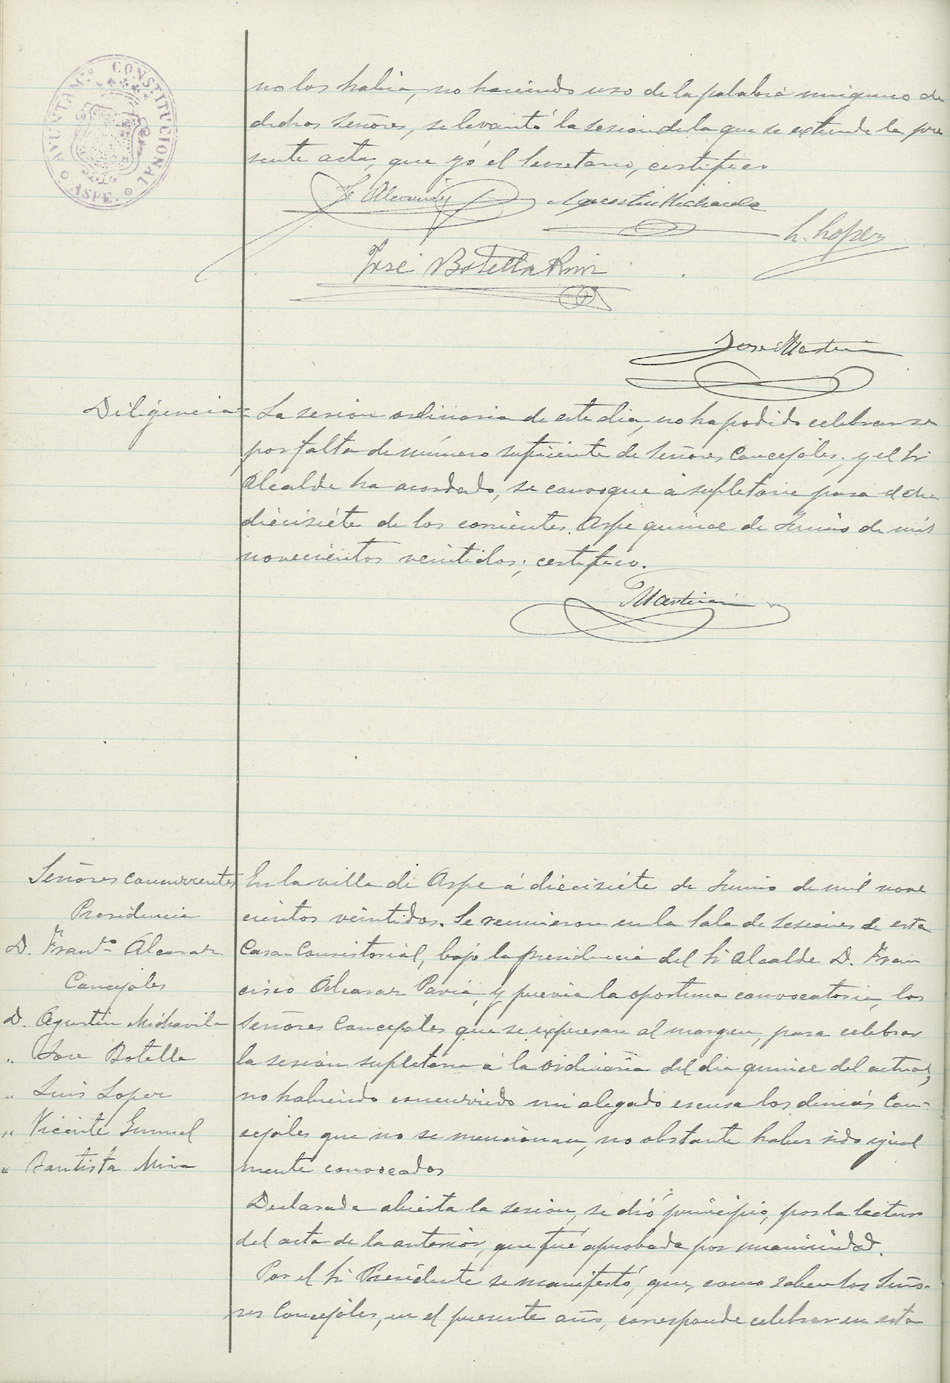 AYUNTAM.º CONSTITUCIONAL
ASPE.
no los habia, no haciendo uso de la palabra ninguno de
dichos Señores, se levantó la sesion de la que se extiende la pre
sente acta, que yó el Secretario, certifico
F. Alcaraz
Agustin Michavila
L. Lopez
José Botella Ruiz
José Martin
Diligencia = La sesion ordinaria de este dia, no ha podido celebrarse
por falta de número suficiente de Señores Concejales, y el Sr
Alcalde ha acordado, se convoque á supletoria para el dia
diecisiéte de los corrientes. Aspe quince de Junio de mil
novecientos veintidos; certifico.
Martin
Señores concurrentes
Presidencia
D. Franco Alcaraz
Concejales
D. Agustin Michavila
" José Botella
" Luis Lopez
" Vicente Gumiel
" Bautista Mira
En la villa de Aspe á diecisiéte de Junio de mil nove
cientos veintidos. Se reunieron en la Sala de Sesiones de esta
Casa Consistorial, bajo la presidencia del Sr Alcalde D. Fran
cisco Alcaraz Pavia, y previa la oportuna convocatoria, los
Señores Concejales que se expresan al margen, para celebrar
la sesion supletoria á la ordinaria del dia quince del actual,
no habiendo concurrido ni alegado escusa los demás Con-
cejales que no se mencionan, no obstante haber sido igual
mente convocados
Declarada abierta la sesion, se dió principio, por la lectura
del acta de la anterior, que fué aprobada por unanimidad.
Por el Sr Presidente se manifestó, que, como saben los Seño-
res Concejales, en el presente año, corresponde celebrar en esta